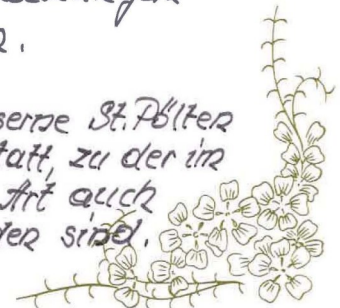 serne St. Pölten
tatt, zu der im
Art auch
den sind.